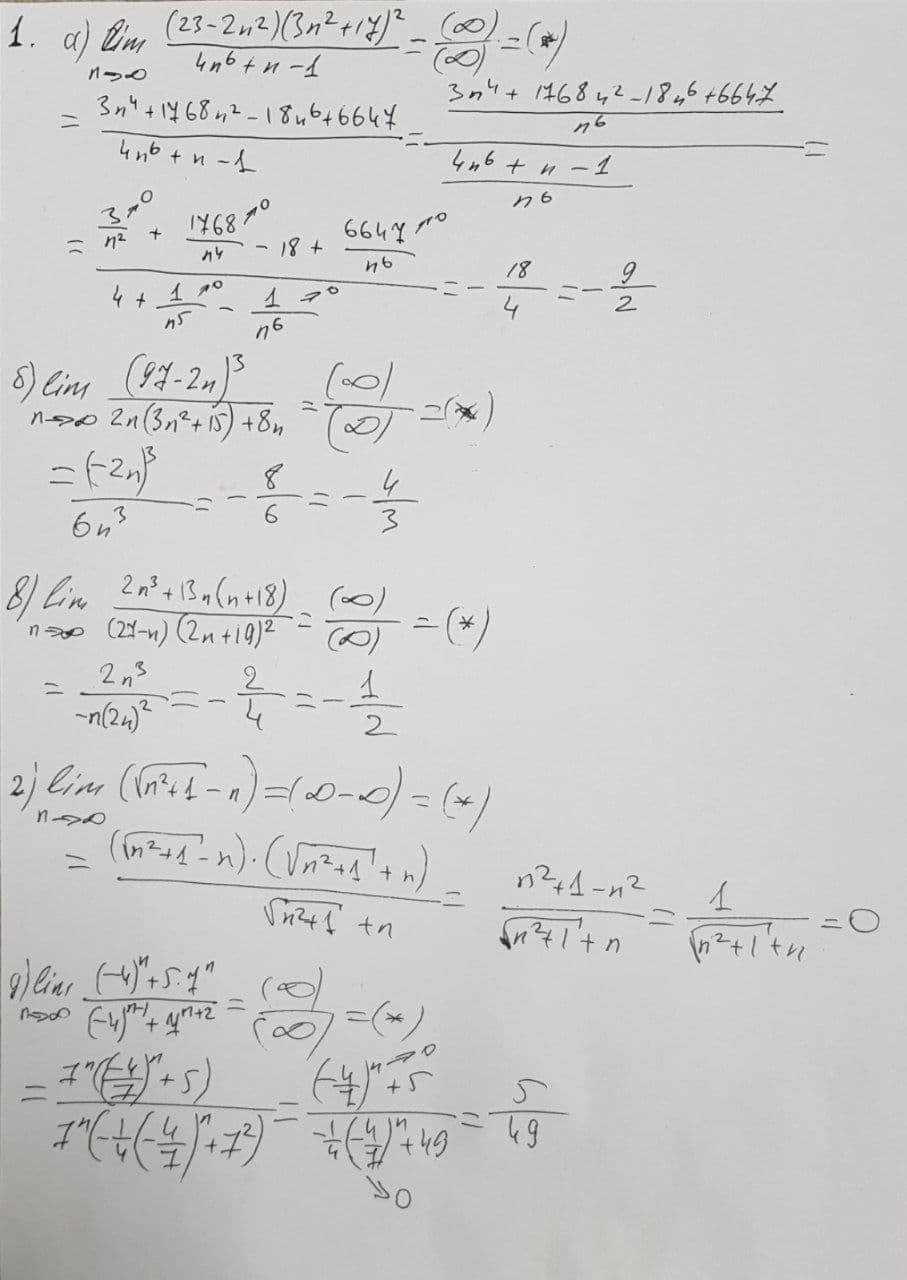 1. а) lim (23-2n²)(3n²+17)² / (4n⁶+n-1) = (∞)/(∞) = (*)
n→∞
= (3n⁴+1768n²-18n⁶+6647) / (4n⁶+n-1) = ((3n⁴+1768n²-18n⁶+6647)/n⁶) / ((4n⁶+n-1)/n⁶) =
= (3/n²↗0 + 1768/n⁴↗0 - 18 + 6647/n⁶↗0) / (4 + 1/n⁵↗0 - 1/n⁶↗0) = -18/4 = -9/2
б) lim (97-2n)³ / (2n(3n²+15)+8n) = (∞)/(∞) = (*)
n→∞
= (-2n)³ / 6n³ = -8/6 = -4/3
в) lim (2n³+13n(n+18)) / ((27-n)(2n+19)²) = (∞)/(∞) = (*)
n→∞
= 2n³ / (-n(2n)²) = -2/4 = -1/2
г) lim (√(n²+1) - n) = (∞-∞) = (*)
n→∞
= ((√(n²+1) - n)·(√(n²+1) + n)) / (√(n²+1) + n) = (n²+1-n²) / (√(n²+1) + n) = 1 / (√(n²+1) + n) = 0
д) lim ((-4)ⁿ+5·7ⁿ) / ((-4)ⁿ⁻¹+7ⁿ⁺²) = (∞)/(∞) = (*)
n→∞
= 7ⁿ((-4/7)ⁿ+5) / 7ⁿ(-1/4(-4/7)ⁿ+7²) = ((-4/7)ⁿ↗0 + 5) / (-1/4(-4/7)ⁿ↘0 + 49) = 5/49